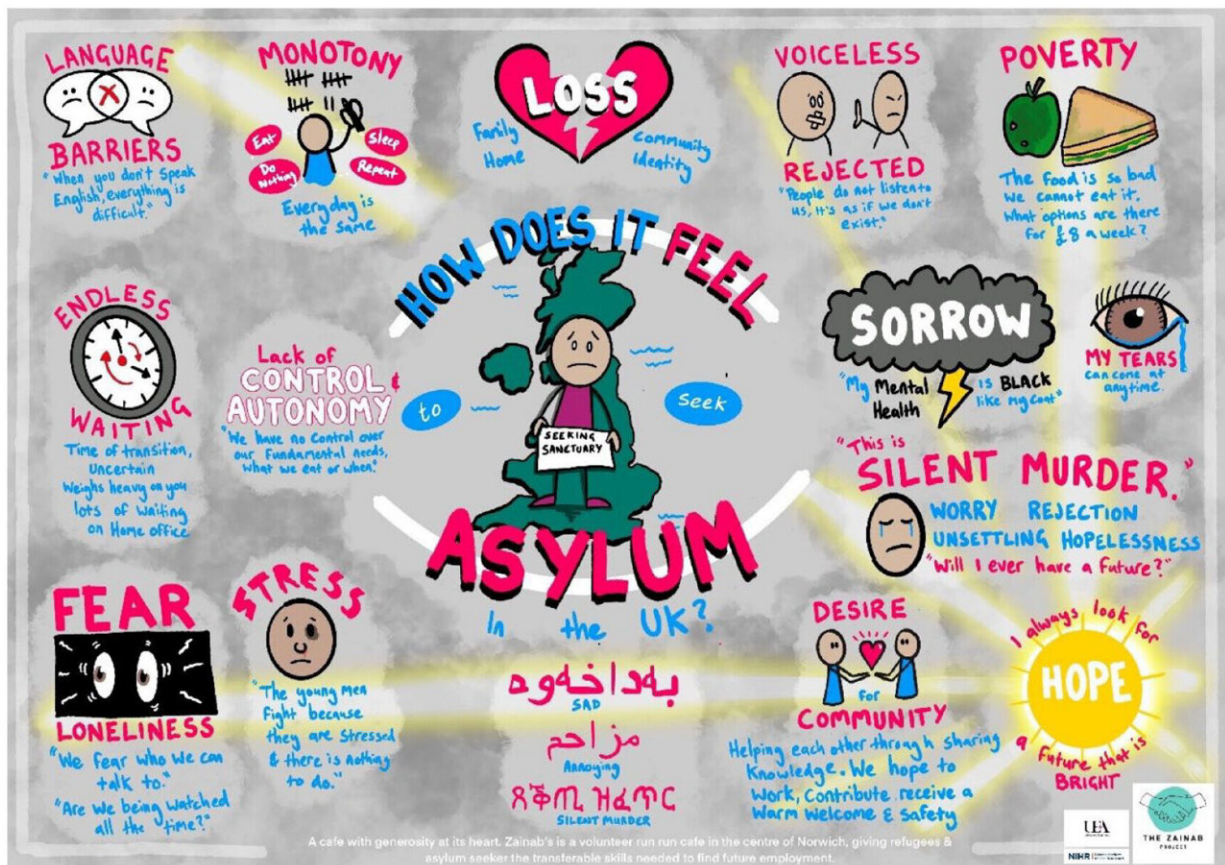 LANGUAGE
BARRIERS
"When you don't speak
English, everything is
difficult."
MONOTONY
Eat
Sleep
Do
Nothing
Repeat
Everyday is
the same
LOSS
Family
Home
Community
identity
VOICELESS
REJECTED
"People do not listen to
us, it's as if we don't
exist."
POVERTY
The food is so bad
we cannot eat it.
What options are there
for £8 a week?
HOW DOES IT FEEL
to
seek
SEEKING
SANCTUARY
ASYLUM
In the UK?
ENDLESS
WAITING
Time of transition,
uncertain
Weighs heavy on you
lots of waiting
on Home office
Lack of
CONTROL &
AUTONOMY
"We have no control over
our fundamental needs,
what we eat or when."
SORROW
"My Mental
Health
is BLACK
like my coat"
MY TEARS
can come at
anytime.
"This is
SILENT MURDER."
WORRY REJECTION
UNSETTLING HOPELESSNESS
"Will I ever have a future?"
FEAR
LONELINESS
"We fear who we can
talk to."
"Are we being watched
all the time?"
STRESS
"The young men
fight because
they are stressed
& there is nothing
to do."
بەداخەوە
SAD
مزاحم
Annoying
SILENT MURDER
DESIRE
for
COMMUNITY
Helping each other through sharing
knowledge. We hope to
work, contribute, receive a
warm welcome & safety
I always look for
HOPE
a future that is
BRIGHT
UEA
NIHR
THE ZAINAB
PROJECT
A cafe with generosity at its heart. Zainab's is a volunteer run run cafe in the centre of Norwich, giving refugees &
asylum seeker the transferable skills needed to find future employment.